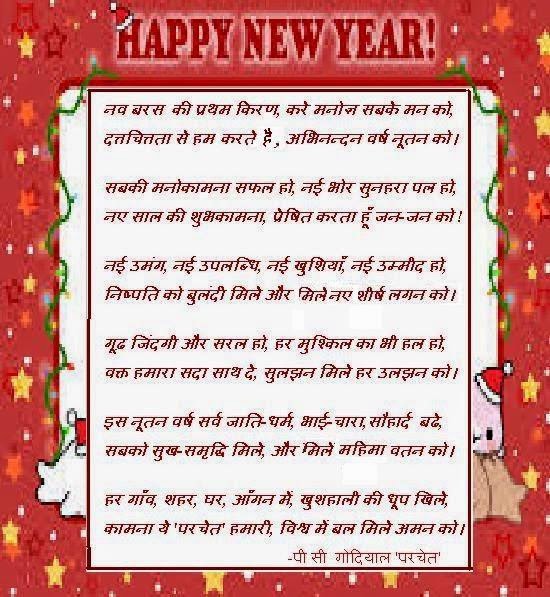 HAPPY NEW YEAR!
नव बरस की प्रथम किरण, करे मनोज़ सबके मन को,
दत्तचित्तता से हम करते है, अभिनन्दन वर्ष नूतन को।
सबकी मनोकामना सफल हो, नई भोर सुनहरा पल हो,
नए साल की शुभकामना, प्रेषित करता हूँ जन-जन को!
नई उमंग, नई उपलब्धि, नई खुशियाँ, नई उम्मीद हो,
निष्पति को बुलंदी मिले और मिले नए शीर्ष लगन को।
गूढ जिंदगी और सरल हो, हर मुश्किल का भी हल हो,
वक्त हमारा सदा साथ दे, सुलझन मिले हर उलझन को।
इस नूतन वर्ष सर्व जाति-धर्म, भाई-चारा,सौहार्द बढे,
सबको सुख-समृद्धि मिले, और मिले महिमा वतन को।
हर गाँव, शहर, घर, आँगन में, खुशहाली की धूप खिले,
कामना ये 'परचेत' हमारी, विश्व में बल मिले अमन को।
-पी सी गोदियाल 'परचेत'